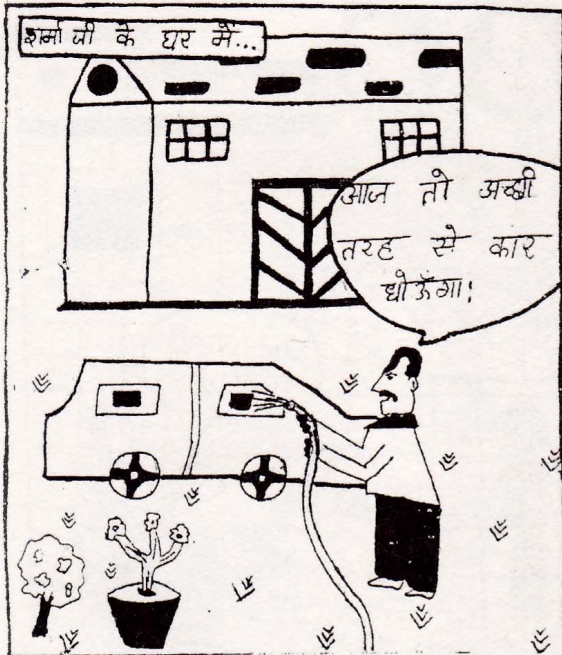 शर्मा जी के घर में...
आज तो अच्छी
तरह से कार
धोऊँगा!